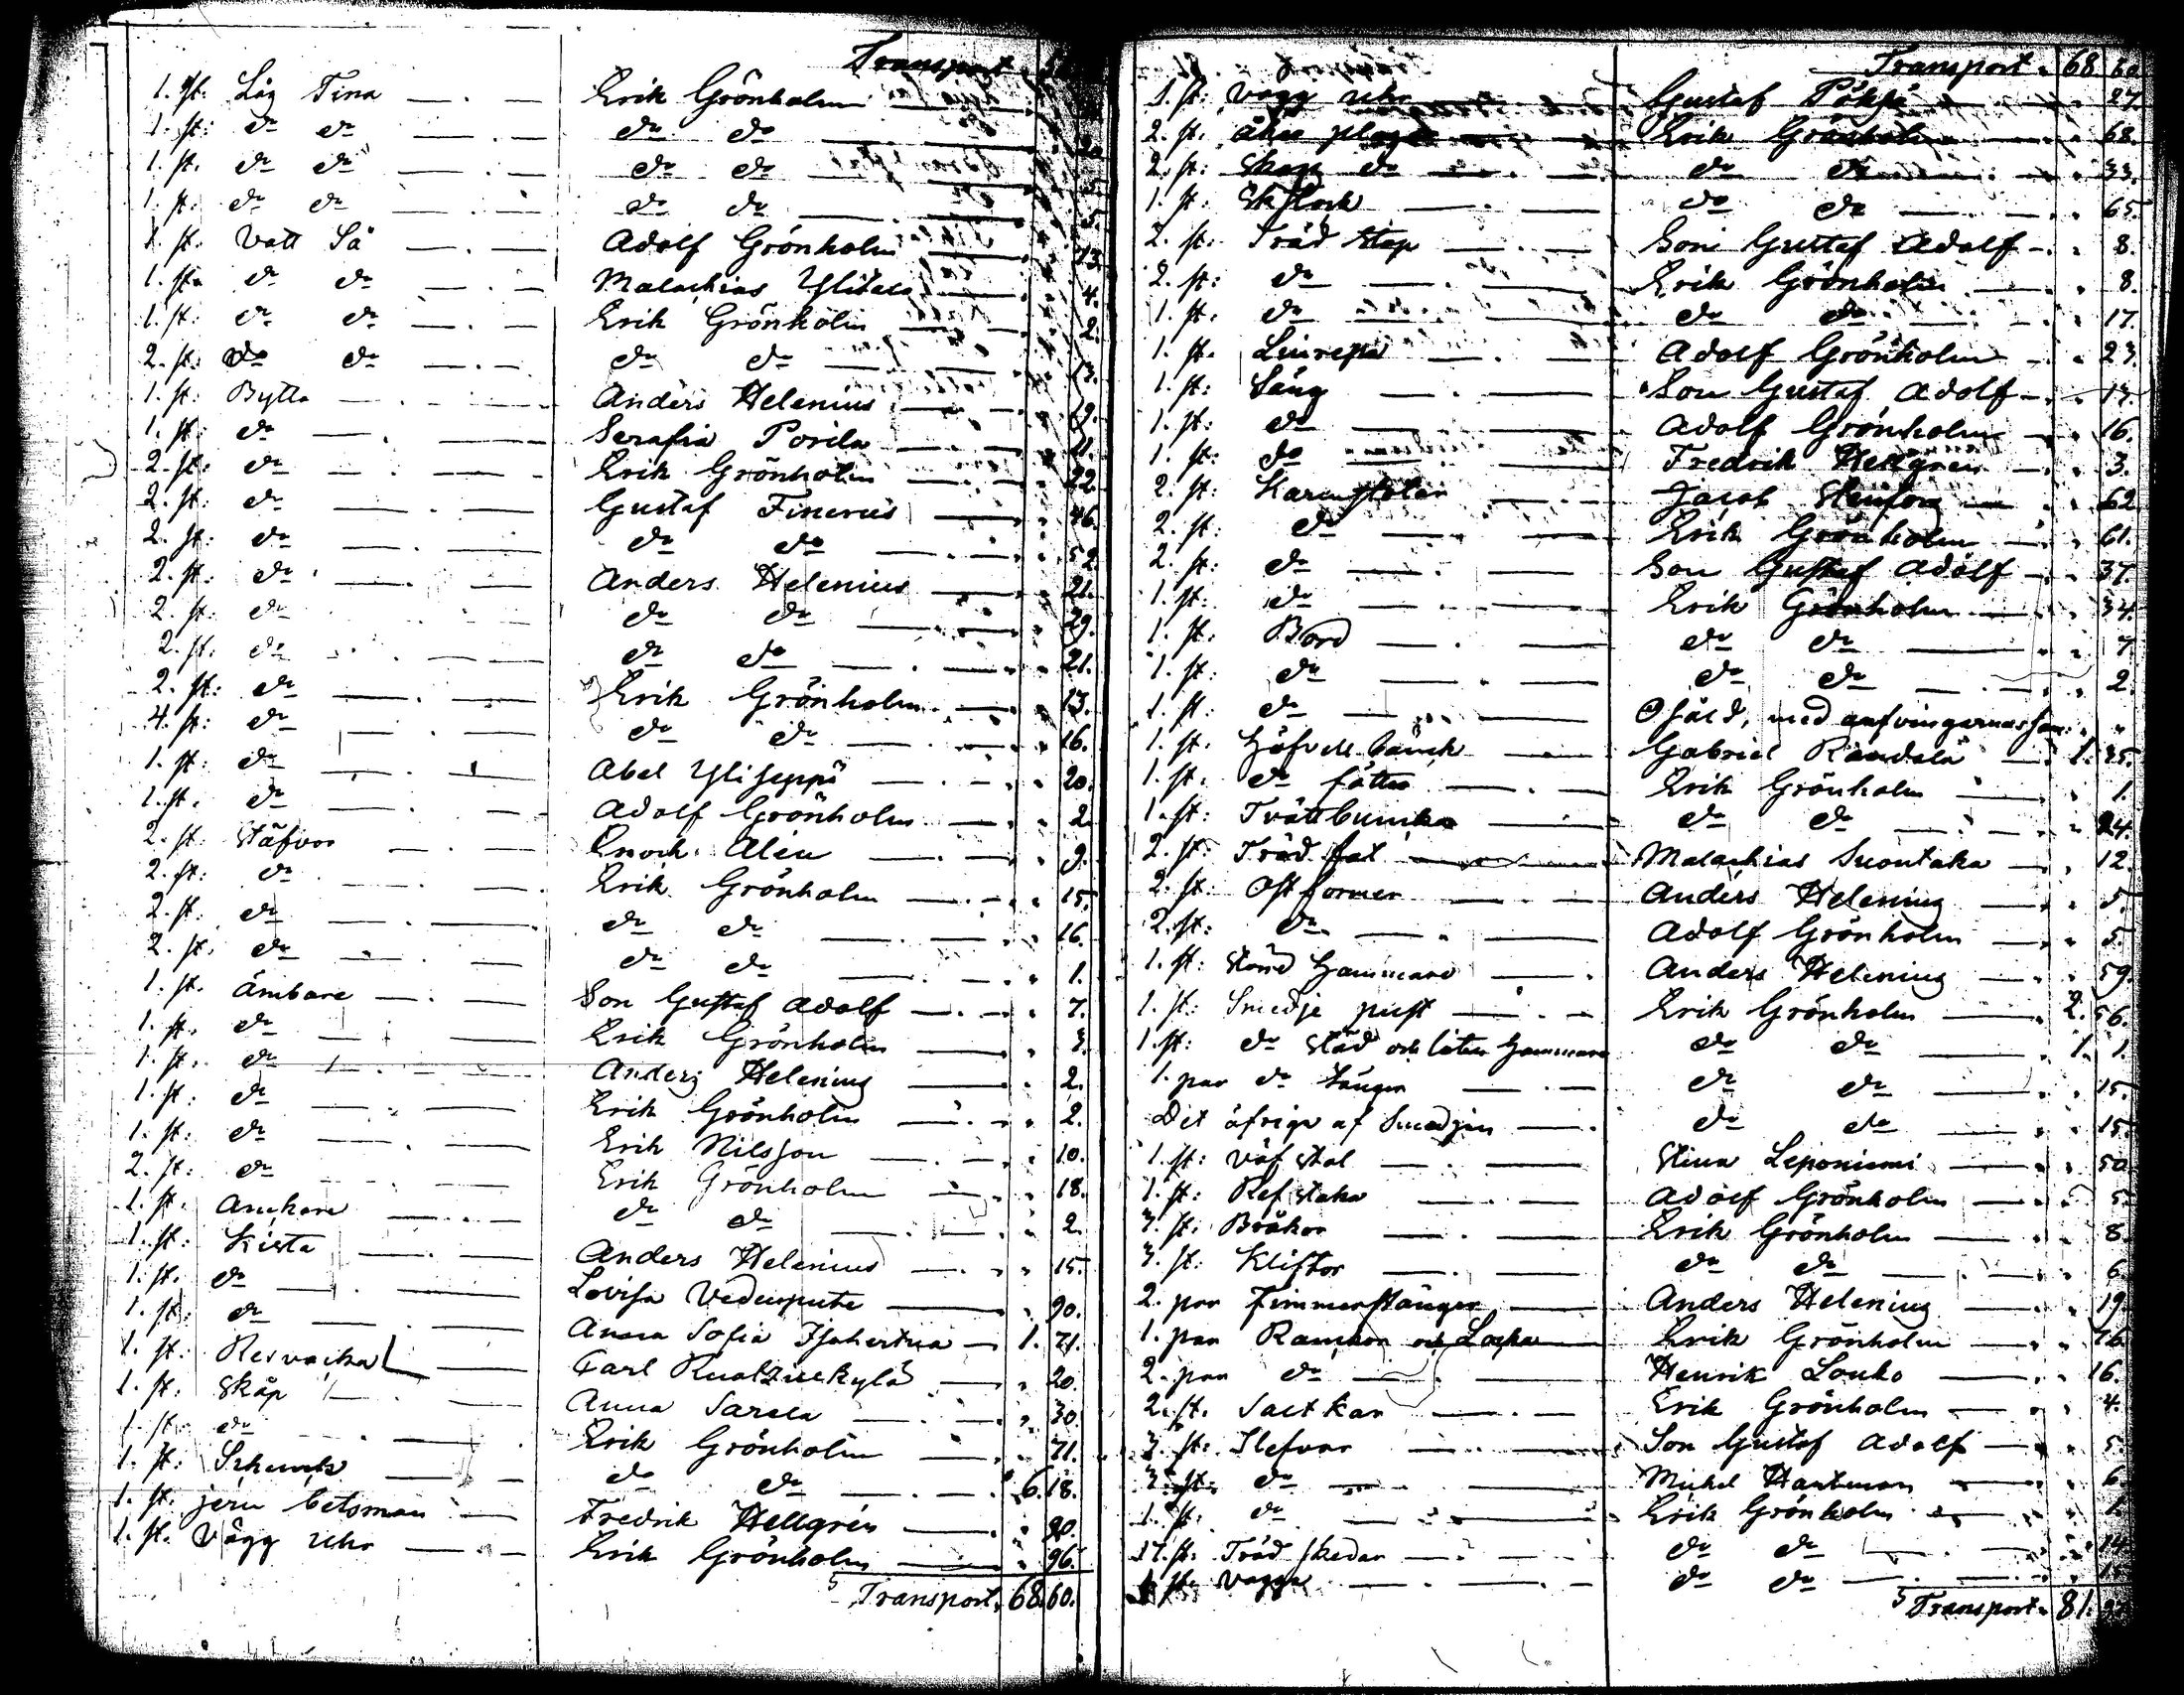 Transport
1. st. Låg Tina Erik Grönholm
1. st: do do do do 20
1. st. do do do do 5.
1. st: do do do do 5.
1. st. Vatt Så Adolf Grönholm 13.
1. st. do do Malachias Ylitalo 4.
1. st: do do Erik Grönholm 2.
2. st: do do do do 13.
1. st: Bytta Anders Helenius 9.
1. st: do Serafia Porila 11.
2. st: do Erik Grönholm 22.
2. st: do Gustaf Finerus 46.
2. st: do do do 52.
2. st: do Anders Helenius 21.
2. st: do do do 29.
2. st. do do do 21.
2. st: do Erik Grönholm 13.
4. st: do do do 16.
1. st: do Abel Yliseppä 20.
1. st. do Adolf Grönholm 2.
2. st. Stäfvor Enoch Alén 9.
2. st: do Erik Grönholm 15.
2. st. do do do 16.
2. st. do do do 1.
1. st. Ämbare Son Gustaf Adolf 7.
1. st. do Erik Grönholm 3.
1. st. do Anders Helenius 2.
1. st: do Erik Grönholm 2.
1. st: do Erik Nilsson 10.
2. st: do Erik Grönholm 18.
1. st. Ankare do do 2.
1. st: Kista Anders Helenius 15.
1. st. do Lovisa 90.
1. st: do Anna Sofia 1. 71.
1. st: Carl 20.
1. st. Skåp Anna Sarela 30.
1. st: do Erik Grönholm 71.
1. st: Schenk do do 6. 18.
1. st. jern betsman Fredrik Hellgrén 90.
1. st. Vägg Uhr Erik Grönholm 96.
Transport. 68. 60.
Transport. 68 60
1. st: Vägg Uhr Gustaf 27.
2. st. åker plogar Erik Grönholm 68.
2. st: Skog do do do 33.
1. st: do do 65.
2. st. Träd Son Gustaf Adolf 8.
2. st: do Erik Grönholm 8.
1. st. do do do 17.
1. st. Linrepa Adolf Grönholm 23.
1. st: Säng Son Gustaf Adolf 17.
1. st: do Adolf Grönholm 16.
1. st: do Fredrik Hellgrén 3.
2. st: Karmstolar Jacob 62.
2. st: do Erik Grönholm 61.
2. st: do Son Gustaf Adolf 37.
1. st: do Erik Grönholm 34.
1. st. Bord do do 7.
1. st: do do do 2.
1. st: do Osåld, med arfvingarnas sam:
1. st. Höfvell bänk Gabriel Randela 1. 35.
1. st. do Erik Grönholm 1.
1. st: Tvättbunka do do 24.
2. st. Träd fat Malachias Suontaka 12.
2. st: Ostformer Anders Helenius 5.
2. st: do Adolf Grönholm 5.
1. st: Stånd Hammare Anders Helenius 59.
1. st: Smedje pust Erik Grönholm 2. 56.
1. st: do Städ och liten Hammare do do 1. 1.
1. par do tänger do do 15.
Det öfriga af Smedjen do do 15.
1. st: Väf stol Stina Leponiemi 50.
1. st: Ref staka Adolf Grönholm 5.
3. st: Bråkor Erik Grönholm 8.
3. st: Kliftor do do 6.
2. par Timmerstänger Anders Helenius 19.
1. par Rankor och Lockor Erik Grönholm 16.
2. par do Henrik Louko 16.
2. st. Salt kar Erik Grönholm 4.
3. st: Slefvar Son Gustaf Adolf 5.
3. st: do Michel Hantman 6.
1. st. do Erik Grönholm 1.
17. st. Träd skedar do do 14.
1. st. Vagga do do
Transport. 81.